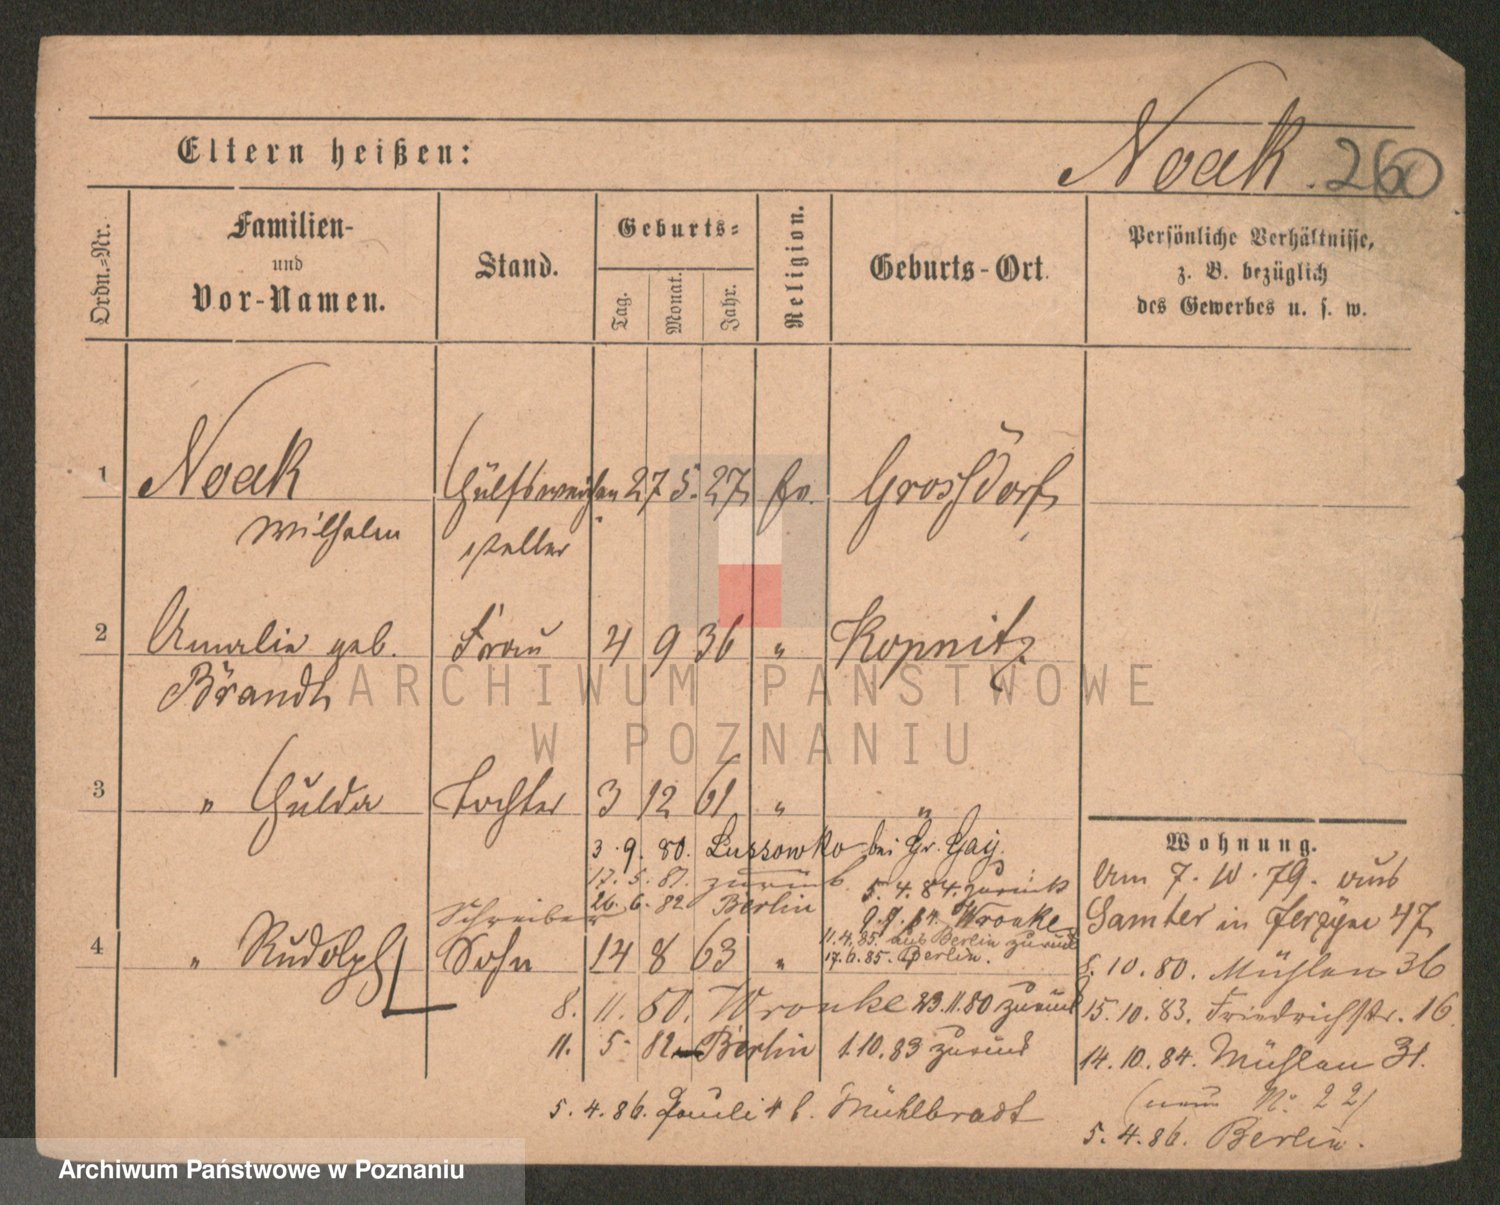 Eltern heißen:
Noak. 260
Ordn.-Nr.
Familien-
und
Vor-Namen.
Stand.
Geburts-
Tag.
Monat.
Jahr.
Religion.
Geburts-Ort.
Persönliche Verhältnisse,
z. B. bezüglich
des Gewerbes u. s. w.
1 Noak 27 5. 27 Ev. Grossdorf
Wilhelm steller
2 Amalie geb. Frau 4 9 36 " Kopnitz
Brandt
3 " Hulda Tochter 3 12 61 " "
3. 9. 80. Lussowko bei Gr. Gay.
17. 5. 81. zurück 5. 4. 84. zurück
26. 6. 82. Berlin 9. 9. 84. Wronke
Schreiber 11. 4. 85. aus Berlin zurück
4 " Rudolph Sohn 14 8 63 " 17. 6. 85. Berlin.
8. 11. 80. Wronke 23. 11. 80 zurück
11. 5 82 Berlin 1. 10. 83 zurück
5. 4. 86. Pauli 4 b. Mühlbradt
Wohnung.
Am 7. 10. 79. aus
Samter in Jerzyce 47
8. 10. 80. Mühlen 36
15. 10. 83. Friedrichstr. 16
14. 10. 84. Mühlen 31.
(neue No. 22)
5. 4. 86. Berlin.
ARCHIWUM PAŃSTWOWE
W POZNANIU
Archiwum Państwowe w Poznaniu